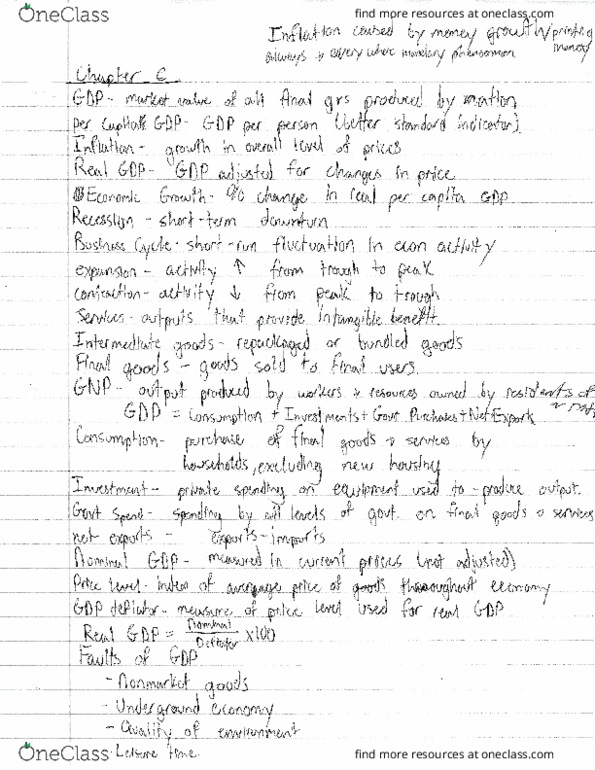 OneClass
find more resources at oneclass.com
Inflation caused by money growth/printing
always + every where monetary phenomenon money
Chapter 6
GDP - market value of all final g+s produced by nation
per capita GDP - GDP per person (better standard indicator)
Inflation - growth in overall level of prices
Real GDP - GDP adjusted for changes in price
Economic Growth - % change in real per capita GDP
Recession - short-term downturn
Business Cycle - short-run fluctuation in econ activity
expansion - activity ↑ from trough to peak
contraction - activity ↓ from peak to trough
Services - outputs that provide intangible benefit.
Intermediate goods - repackaged or bundled goods
Final goods - goods sold to final users.
GNP - output produced by workers + resources owned by residents of
GDP = Consumption + Investments + Govt Purchases + Net Exports
Consumption - purchase of final goods + services by
households, excluding new housing
Investment - private spending on equipment used to produce output.
Govt Spend - spending by all levels of govt. on final goods + services
net exports - exports - imports
Nominal GDP - measured in current prices (not adjusted)
Price level - index of average price of goods throughout economy
GDP deflator - measure of price level used for real GDP
Real GDP = Nominal / Deflator x100
Faults of GDP
- Nonmarket goods
- Underground economy
- Quality of environment
- Leisure time.
OneClass
find more resources at oneclass.com